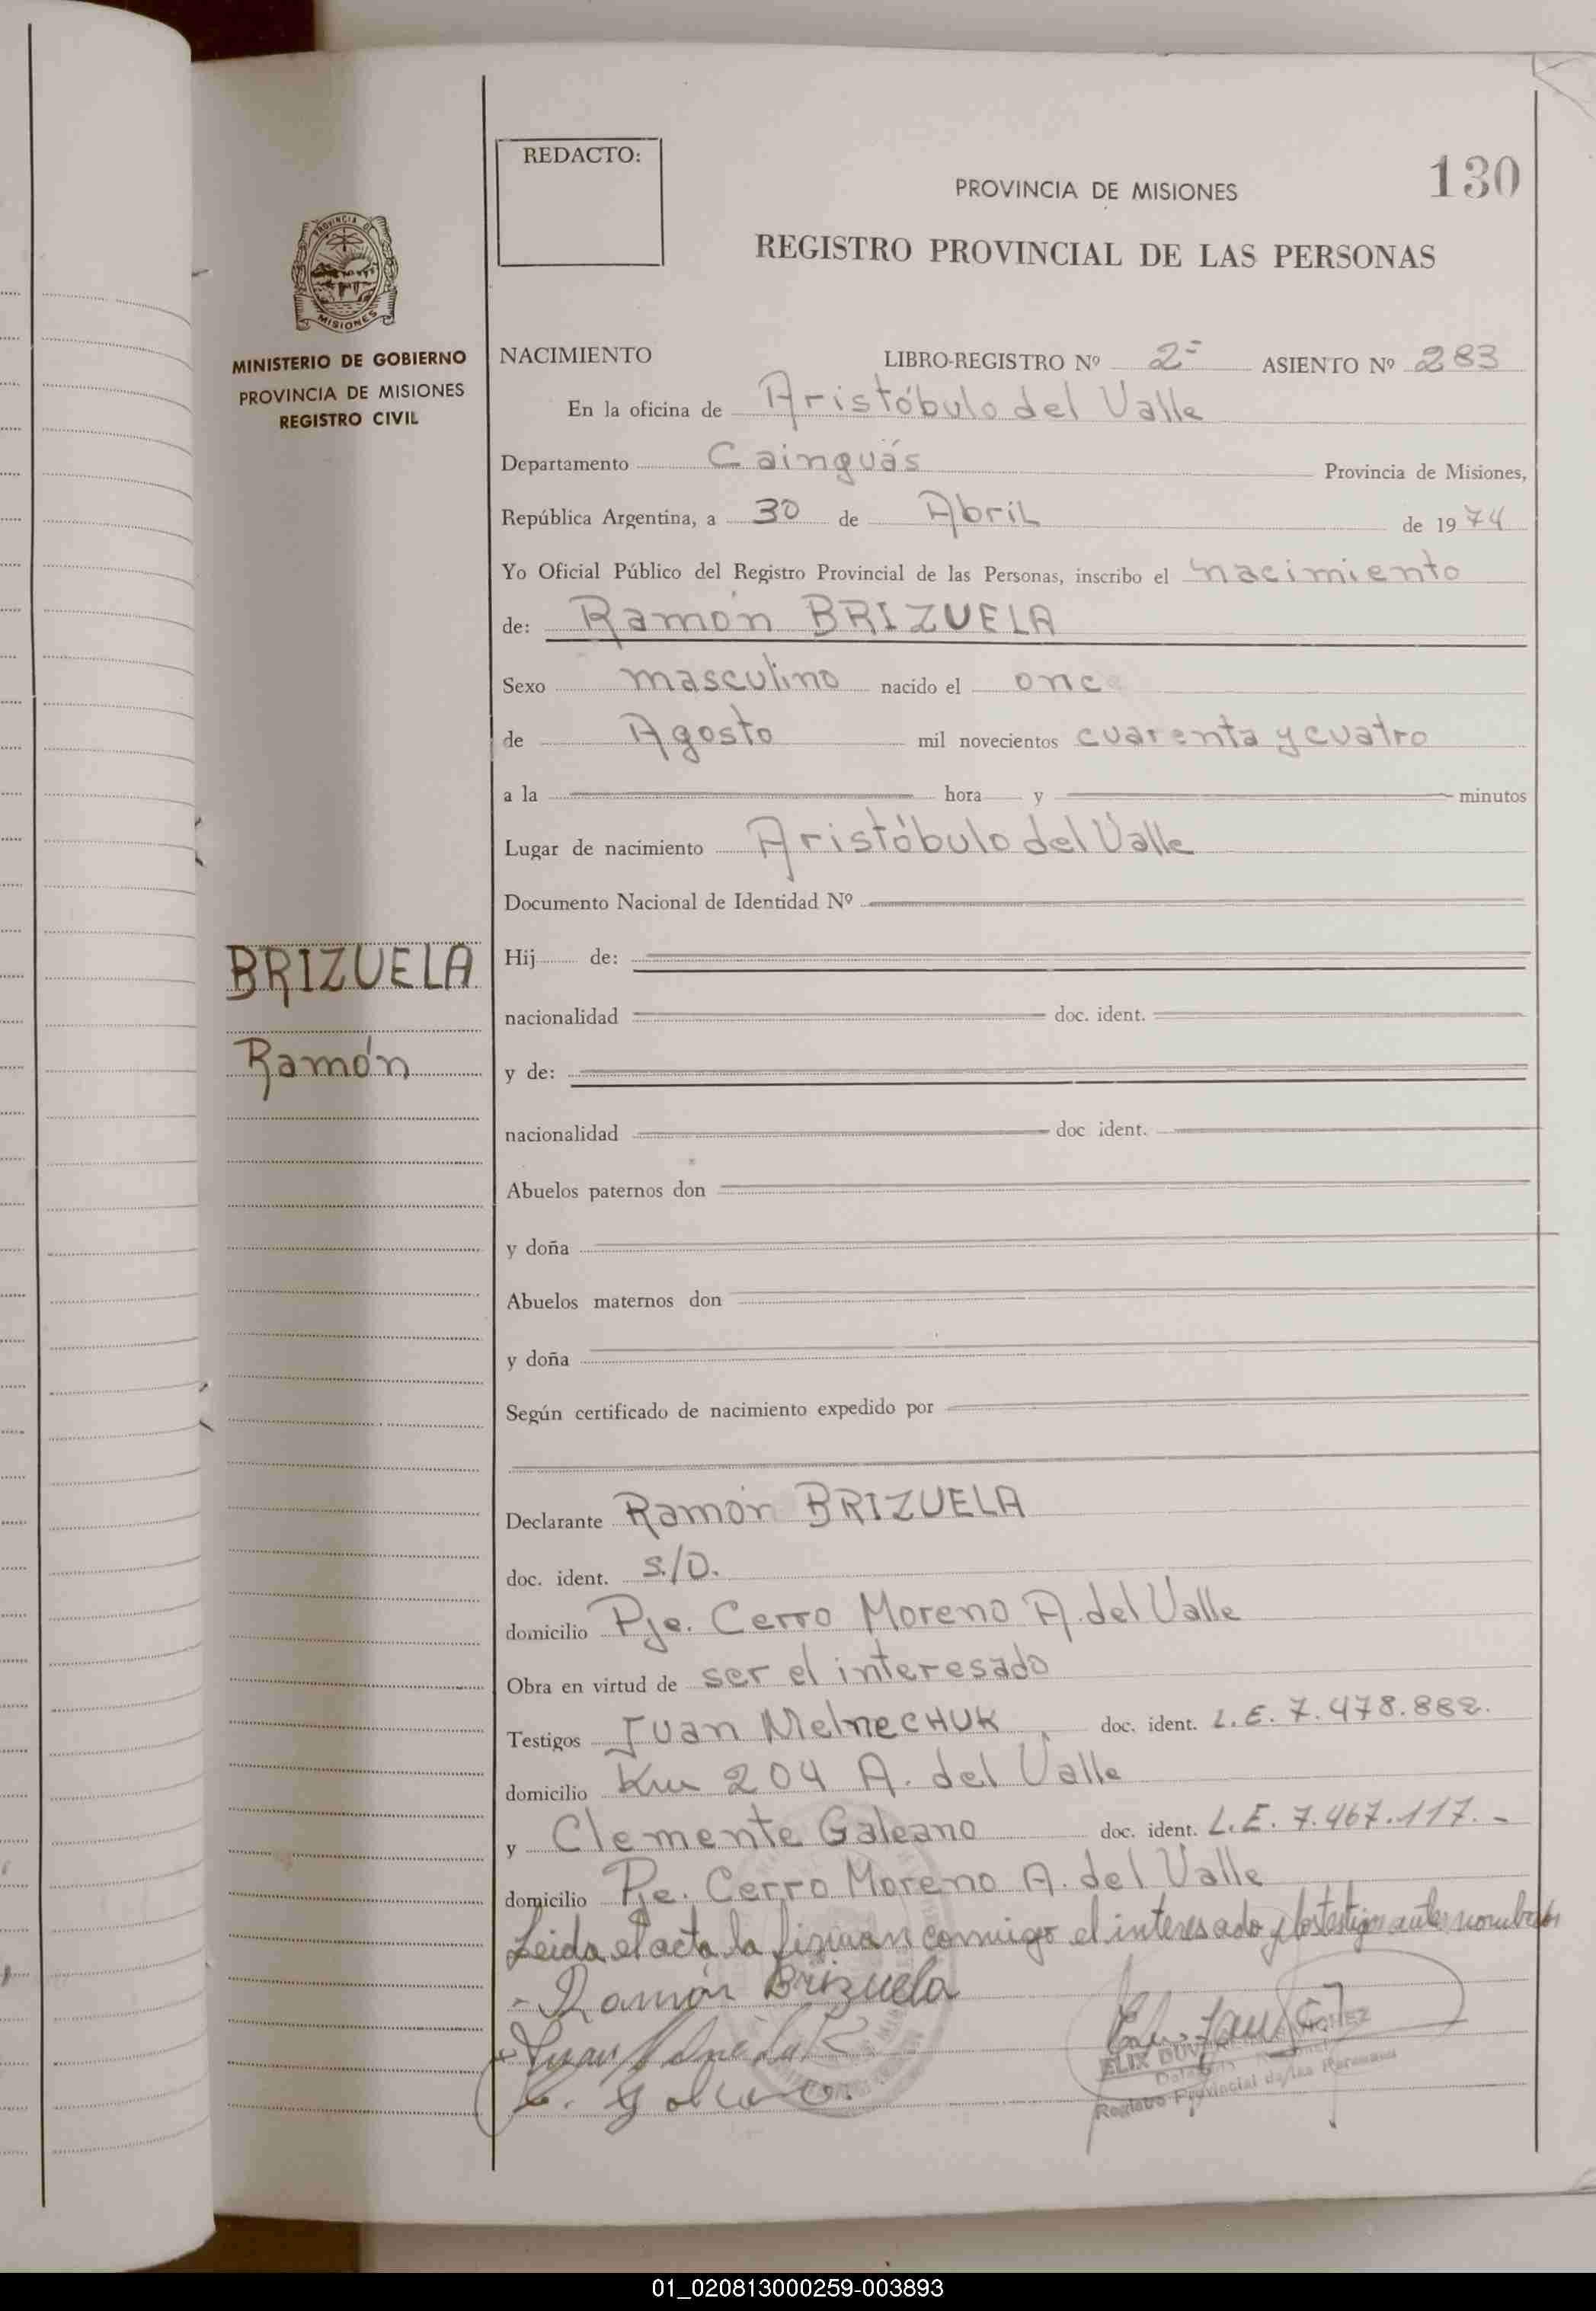 REDACTO:
130
PROVINCIA DE MISIONES
REGISTRO PROVINCIAL DE LAS PERSONAS
PROVINCIA D
MISIONES
MINISTERIO DE GOBIERNO
PROVINCIA DE MISIONES
REGISTRO CIVIL
NACIMIENTO LIBRO-REGISTRO Nº 2- ASIENTO Nº 283
En la oficina de Aristóbulo del Valle
Departamento Cainguás Provincia de Misiones,
República Argentina, a 30 de Abril de 1974
Yo Oficial Público del Registro Provincial de las Personas, inscribo el nacimiento
de: Ramón BRIZUELA
Sexo masculino nacido el once
de Agosto mil novecientos cuarenta y cuatro
a la hora y minutos
Lugar de nacimiento Aristóbulo del Valle
Documento Nacional de Identidad Nº
BRIZUELA
Ramón
Hij de:
nacionalidad doc. ident.
y de:
nacionalidad doc ident.
Abuelos paternos don
y doña
Abuelos maternos don
y doña
Según certificado de nacimiento expedido por
Declarante Ramón BRIZUELA
doc. ident. S./D.
domicilio Pje. Cerro Moreno A. del Valle
Obra en virtud de ser el interesado
Testigos Juan MelneCHUK doc. ident. L.E. 7.478.882.
domicilio Km 204 A. del Valle
y Clemente Galeano doc. ident. L.E. 7.467.117.-
domicilio Pje. Cerro Moreno A. del Valle
Leida el acta la firman conmigo el interesado y los testigos antes nombrados
- Ramón Brizuela
Juan
C. Galeano.
Registro Provincial de las Personas
01_020813000259-003893